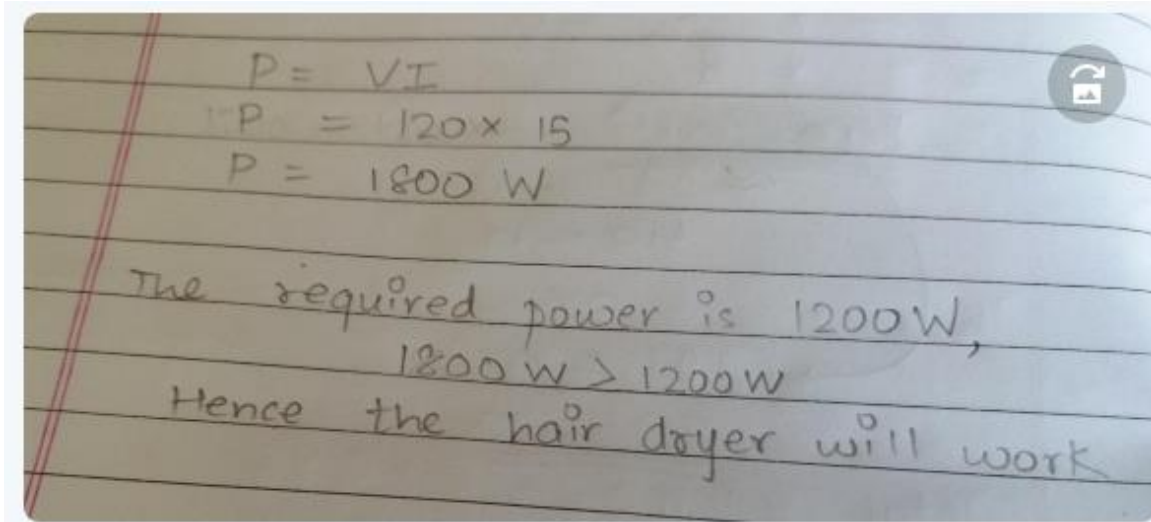 P = VI
P = 120 × 15
P = 1800 W
The required power is 1200 W,
1800 W > 1200 W
Hence the hair dryer will work